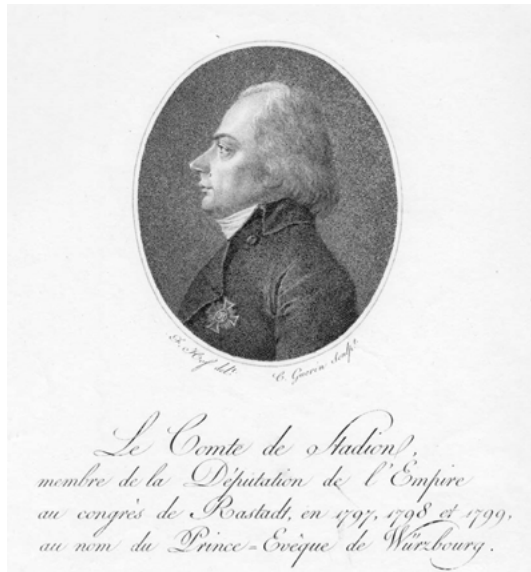 del.
C. Guerin Sculpt.
Le Comte de Stadion,
membre de la Députation de l'Empire
au congrès de Rastadt, en 1797, 1798 et 1799,
au nom du Prince=Evêque de Würzbourg.